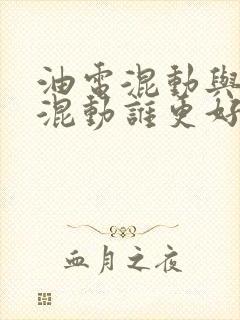 油電混動與
混動誰更好
血月之夜